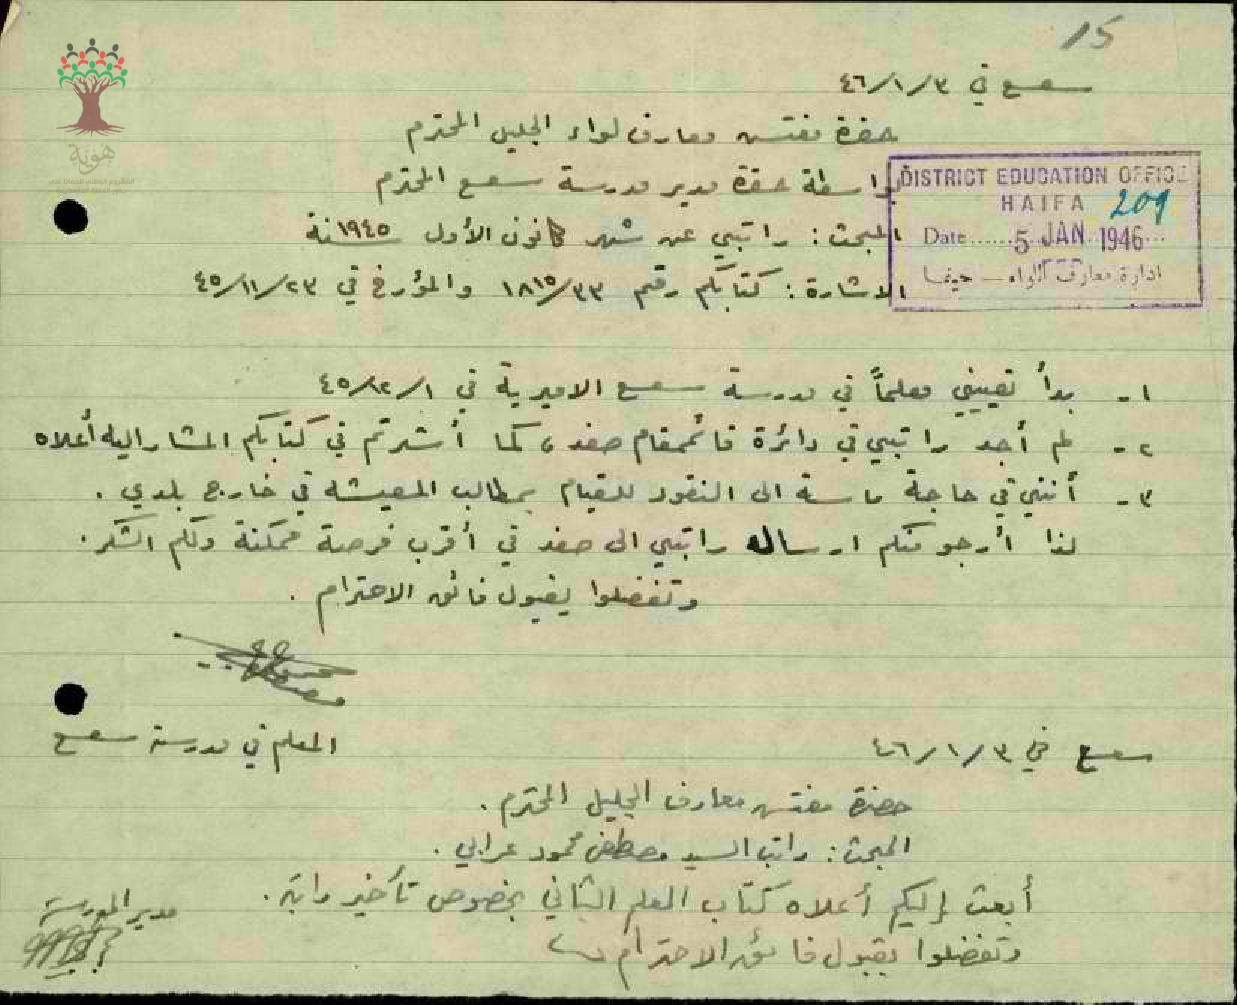 15
سعسع في ٤٦/١/٣
حضرة مفتش معارف لواء الجليل المحترم
بواسطة حضرة مدير مدرسة سعسع المحترم
المبحث: راتبي عن شهر كانون الأول سنة ١٩٤٥
الاشارة: كتابكم رقم ١٨١٥/٣٣ والمؤرخ في ٤٥/١١/٢٣
DISTRICT EDUCATION OFFICE
HAIFA 209
Date...... 5 JAN 1946...
ادارة معارف اللواء - حيفا
١- بدأ تعييني معلماً في مدرسة سعسع الاميرية في ٤٥/١٢/١
٢- لم أجد راتبي في دائرة قائمقام صفد، كما أشرتم في كتابكم المشار اليه أعلاه
٣- أنني في حاجة ماسة الى النقود للقيام بمطالب المعيشة في خارج بلدي.
لذا أرجو منكم ارساله راتبي الى صفد في أقرب فرصة ممكنة ولكم الشكر.
وتفضلوا بقبول فائق الاحترام.
المعلم في مدرسة سعسع
سعسع في ٤٦/١/٣
حضرة مفتش معارف الجليل المحترم.
المبحث: راتب السيد مصطفى محمود عرابي.
أبعث إليكم أعلاه كتاب المعلم الثاني بخصوص تأخير راتبه.
وتفضلوا بقبول فائق الاحترام
مدير المدرسة
هوية